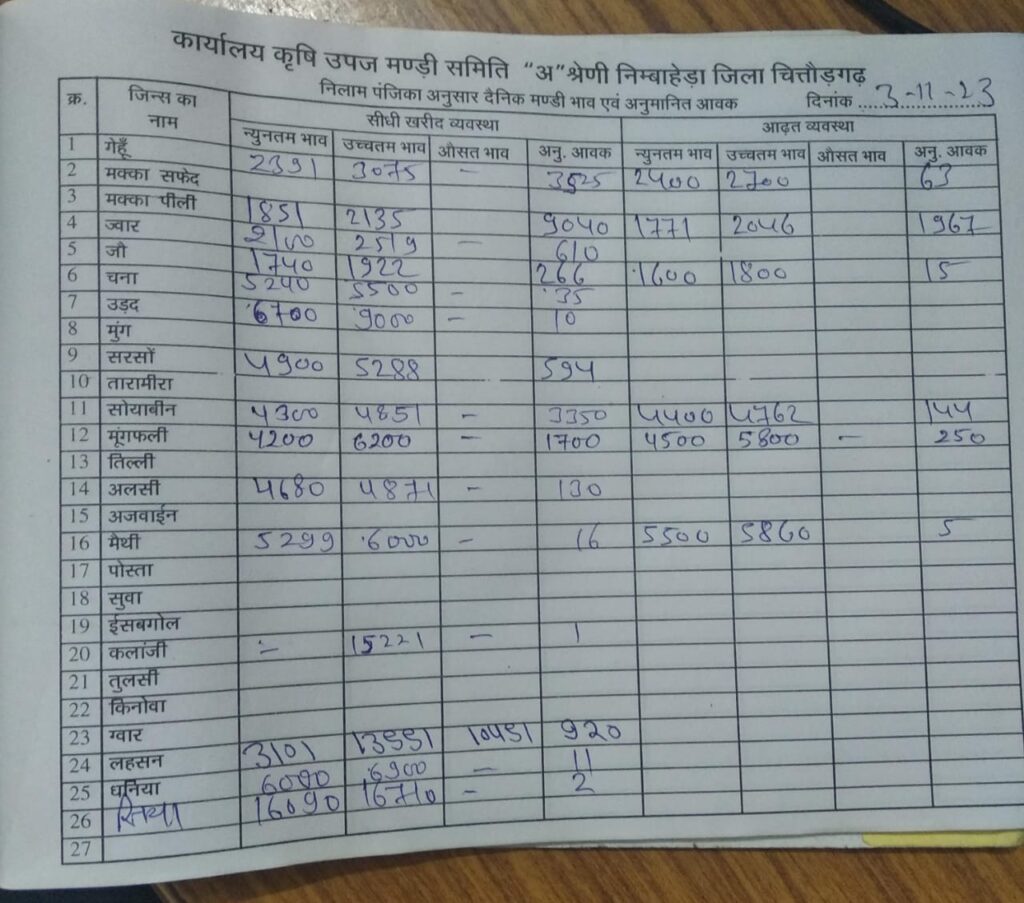 कार्यालय कृषि उपज मण्ड़ी समिति "अ"श्रेणी निम्बाहेड़ा जिला चित्तौड़गढ़
निलाम पंजिका अनुसार दैनिक मण्डी भाव एवं अनुमानित आवक दिनांक ....3-11-23
क्र. जिन्स का नाम सीधी खरीद व्यवस्था आढ़त व्यवस्था
न्युनतम भाव उच्चतम भाव औसत भाव अनु. आवक न्युनतम भाव उच्चतम भाव औसत भाव अनु. आवक
1 गेहूँ 2391 3075 - 3525 2400 2700 63
2 मक्का सफेद
3 मक्का पीली 1851 2135 9040 1771 2046 1967
4 ज्वार 2100 2519 - 610
5 जौ 1740 1922 266 1600 1800 15
6 चना 5240 5500 - 35
7 उड़द 6700 9000 - 10
8 मुंग
9 सरसों 4900 5288 594
10 तारामीरा
11 सोयाबीन 4300 4851 - 3350 4400 4762 144
12 मूंगफली 4200 6200 - 1700 4500 5800 - 250
13 तिल्ली
14 अलसी 4680 4871 - 130
15 अजवाईन
16 मैथी 5299 6000 - 16 5500 5860 5
17 पोस्ता
18 सुवा
19 ईसबगोल - 15221 - 1
20 कलांजी
21 तुलसी
22 किनोवा
23 ग्वार
24 लहसन 3101 13551 10451 920
25 धनिया 6090 6900 - 11
26 16090 16710 - 2
27